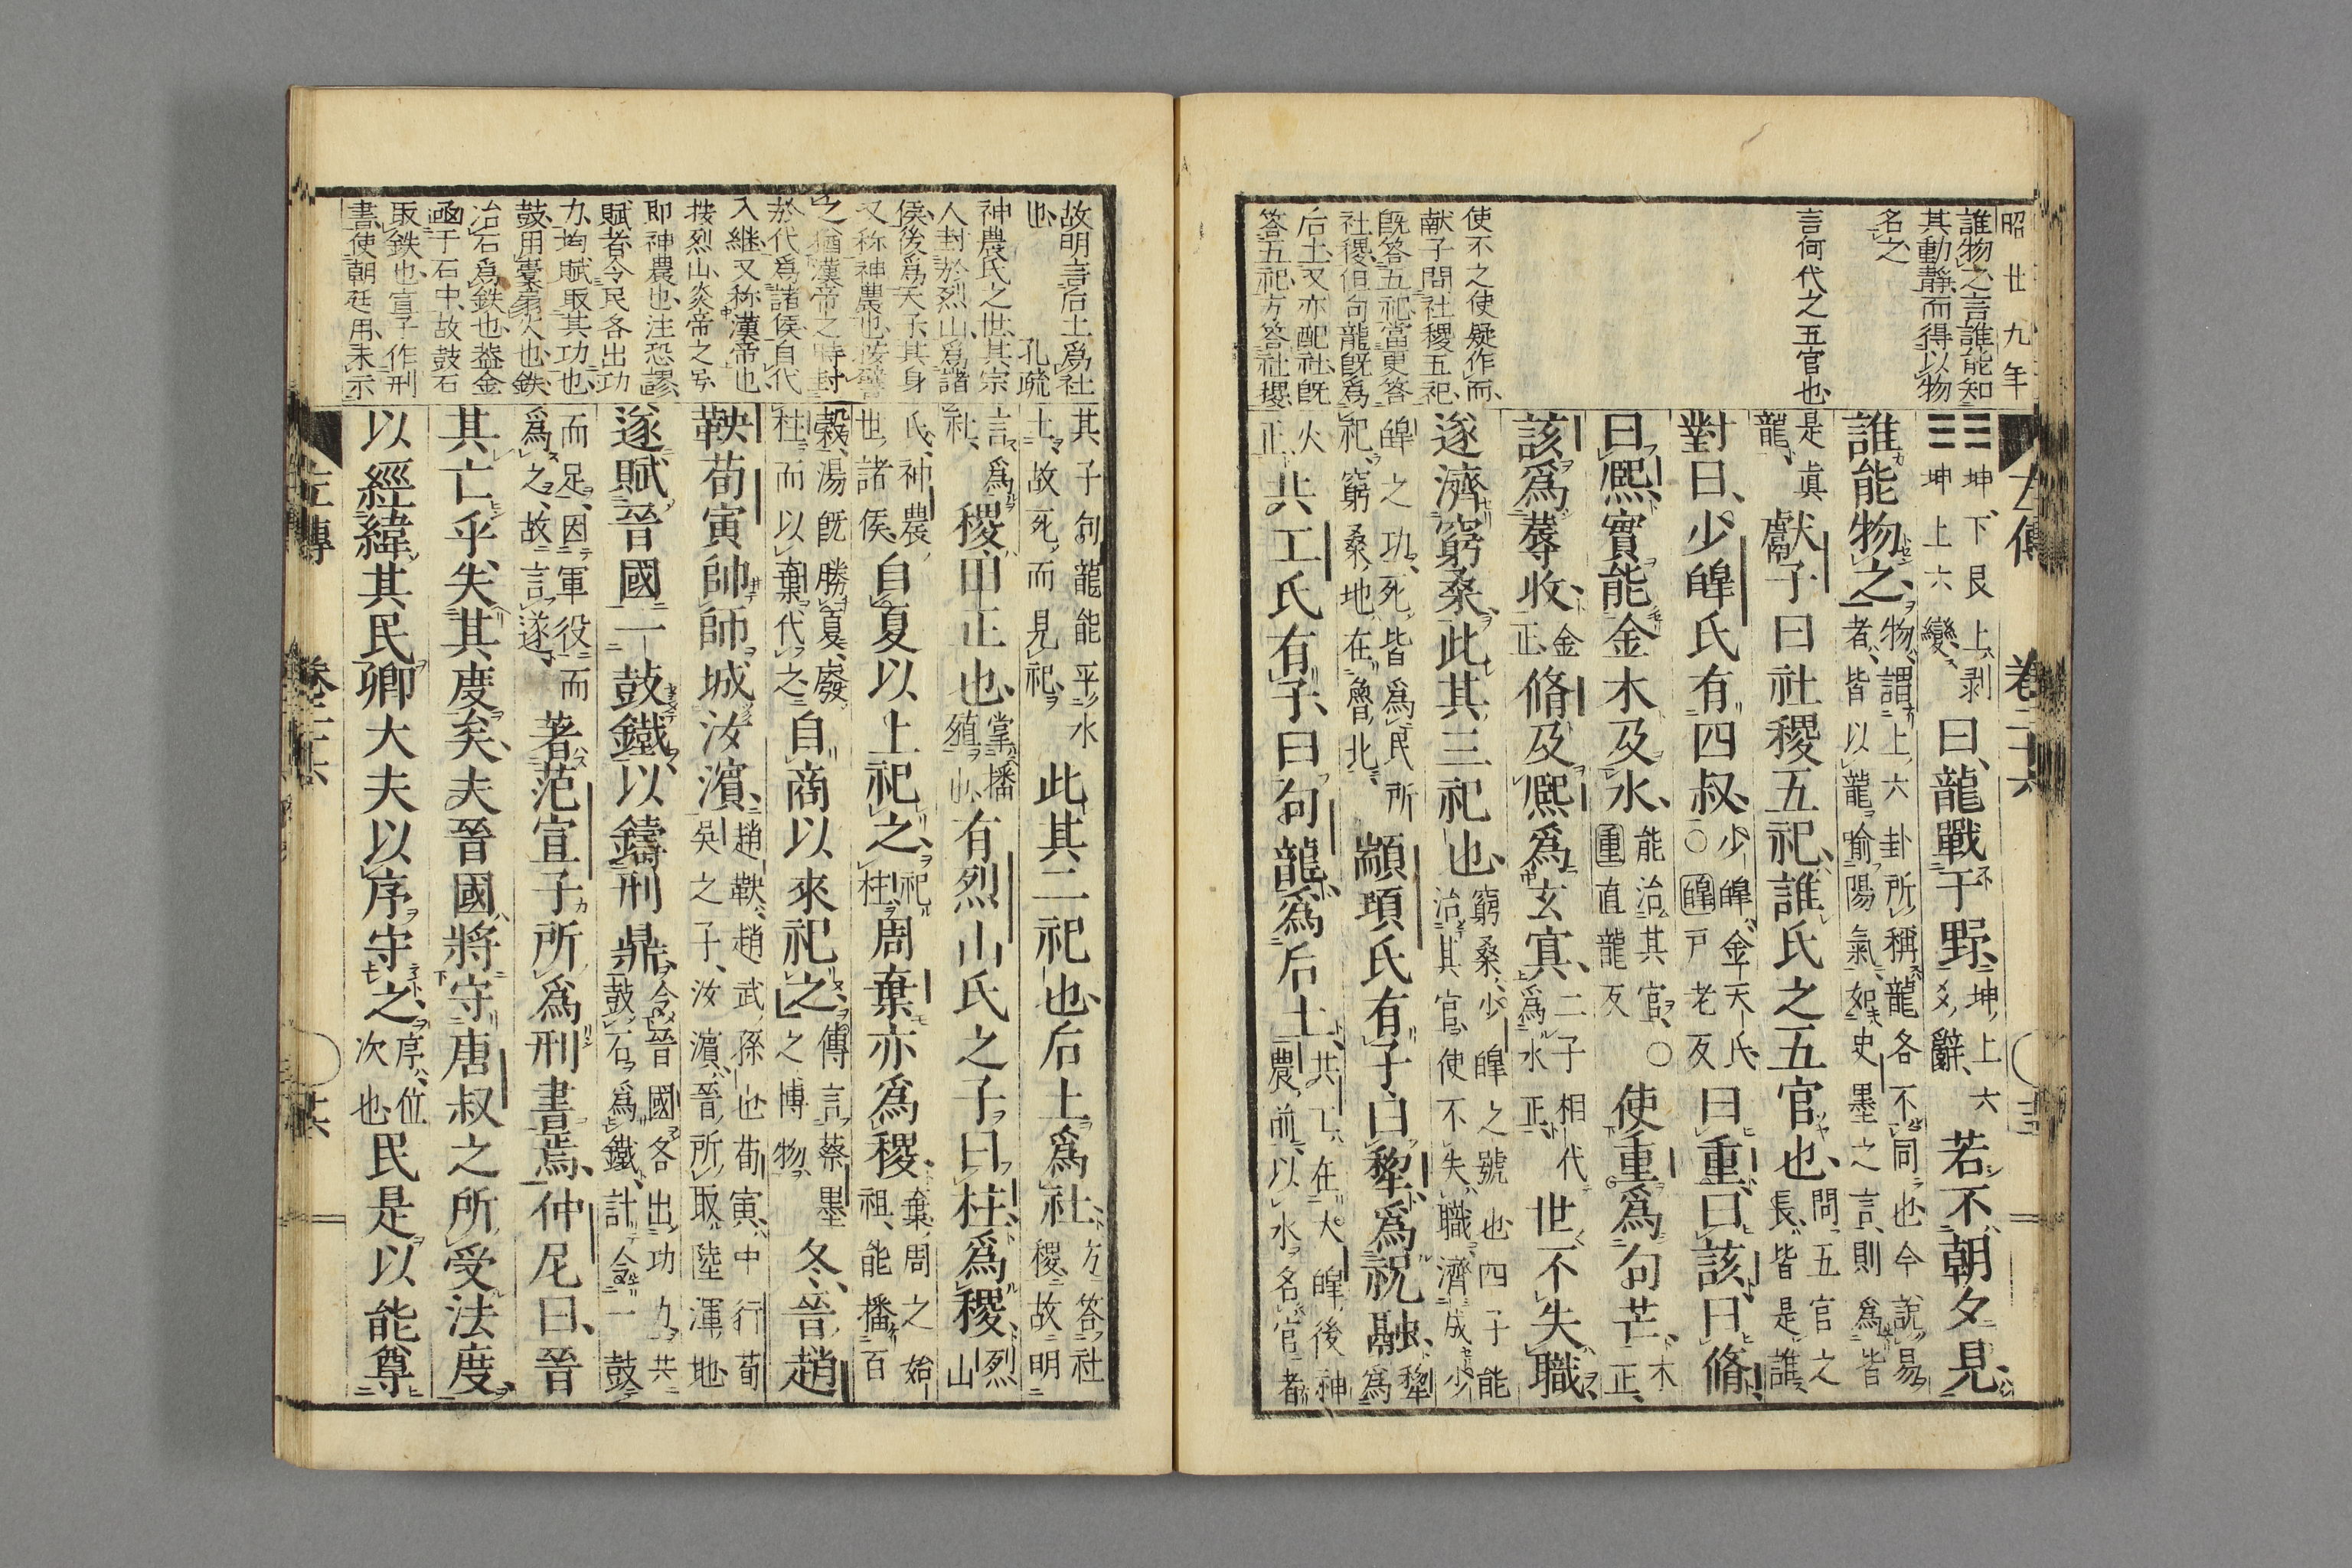 昭廿九年
誰物之言誰能知
其動靜而得以物
名之
言何代之五官也
使不之使疑作而
献子問社稷五祀
既答五祀當更答
社稷但句龍既爲
后土又亦配社既
答五祀方答社稷
左傳 卷二十六
坤下艮上剥坤上六變曰龍戰于野坤上六爻辭若不朝夕見
誰能物之物謂上六卦所稱龍各不同也今說易者皆以龍喻陽氣如史墨之言則爲皆
是眞龍獻子曰社稷五祀誰氏之五官也問五官之長皆是誰
對曰少皞氏有四叔少皞金天氏○皞戸老反曰重曰該曰脩
曰熙實能金木及水能治其官○重直龍反使重爲句芒木正
該爲蓐收金正脩及熙爲玄冥二子相代爲水正世不失職
遂濟窮桑此其三祀也窮桑少皞之號也四子能治其官使不失職濟成少
皞之功死皆爲民所祀窮桑地在魯北顓頊氏有子曰犂爲祝融犂爲
火正共工氏有子曰句龍爲后土共工在大皞後神農前以水名官者
故明言后土爲社
也 孔疏
神農氏之世其宗
人封於烈山爲諸
侯後爲天子其身
又称神農也
之猶漢帝之時封
於代爲諸侯自代
入継又称漢帝也
按烈山炎帝之号
即神農也注恐謬
賦者令民各出功
力均賦取其功也
鼓用橐籥火也鉄
治石爲鉄也蓋金
函于石中故鼓石
取鉄也宣子作刑
書使朝廷用未示
其子句龍能平水土故死而見祀此其二祀也后土爲社方答社稷故明
言爲社稷田正也掌播殖也有烈山氏之子曰柱爲稷烈山
氏神農世諸侯自夏以上祀之祀柱周棄亦爲稷棄周之始祖能播百
穀湯既勝夏廢柱而以棄代之自商以來祀之傳言蔡墨之博物冬晉趙
鞅荀寅帥師城汝濱趙鞅趙武孫也荀寅中行荀吳之子汝濱晉所取陸渾地
遂賦晉國一鼓鐵以鑄刑鼎令晉國各出功力共鼓石爲鐵計令一鼓
而足因軍役而爲之故言遂著范宣子所爲刑書焉仲尼曰晉
其亡乎失其度矣夫晉國將守唐叔之所受法度
以經緯其民卿大夫以序守之序位次也民是以能尊
左傳 卷二十六